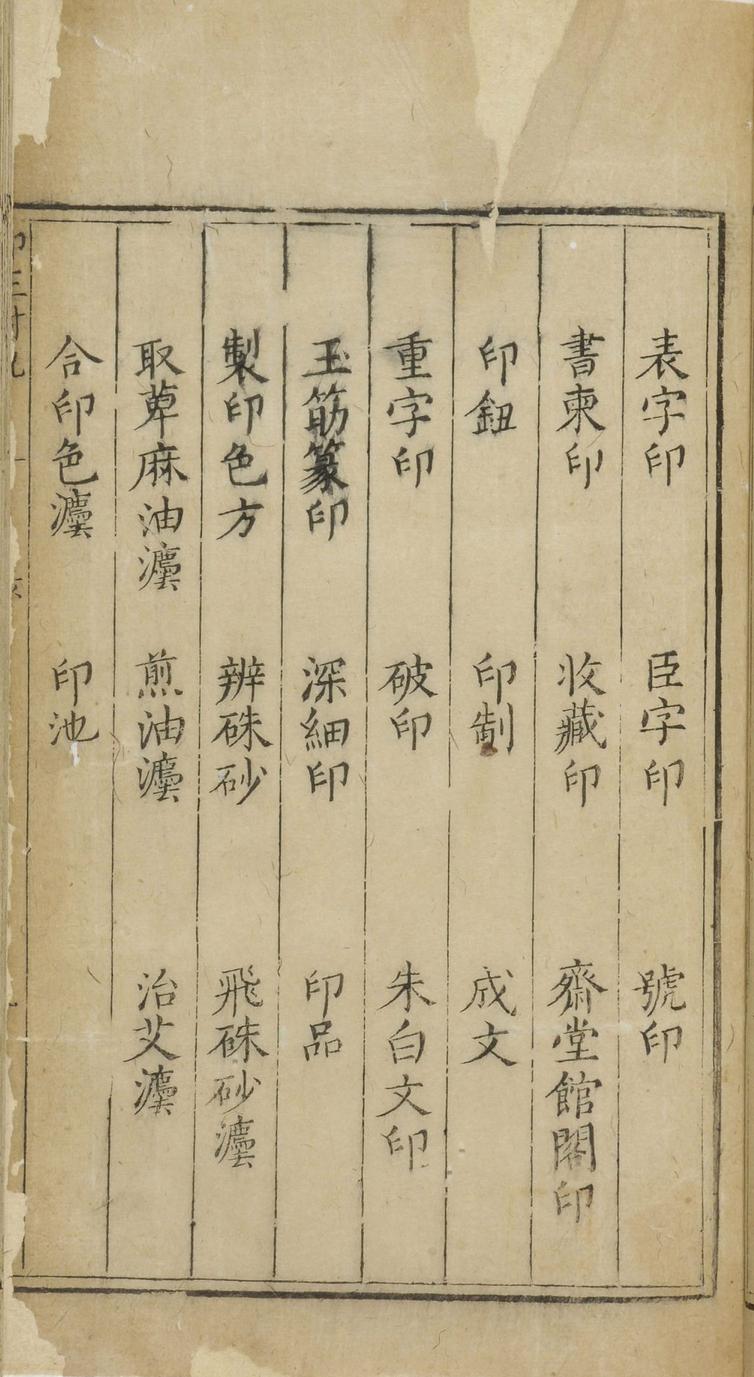 表字印　臣字印　號印
書柬印　收藏印　齋堂館閣印
印鈕　印制　成文
重字印　破印　朱白文印
玉筯篆印　深細印　印品
製印色方　辨硃砂　飛硃砂灋
取萆麻油灋　煎油灋　治艾灋
合印色灋　印池